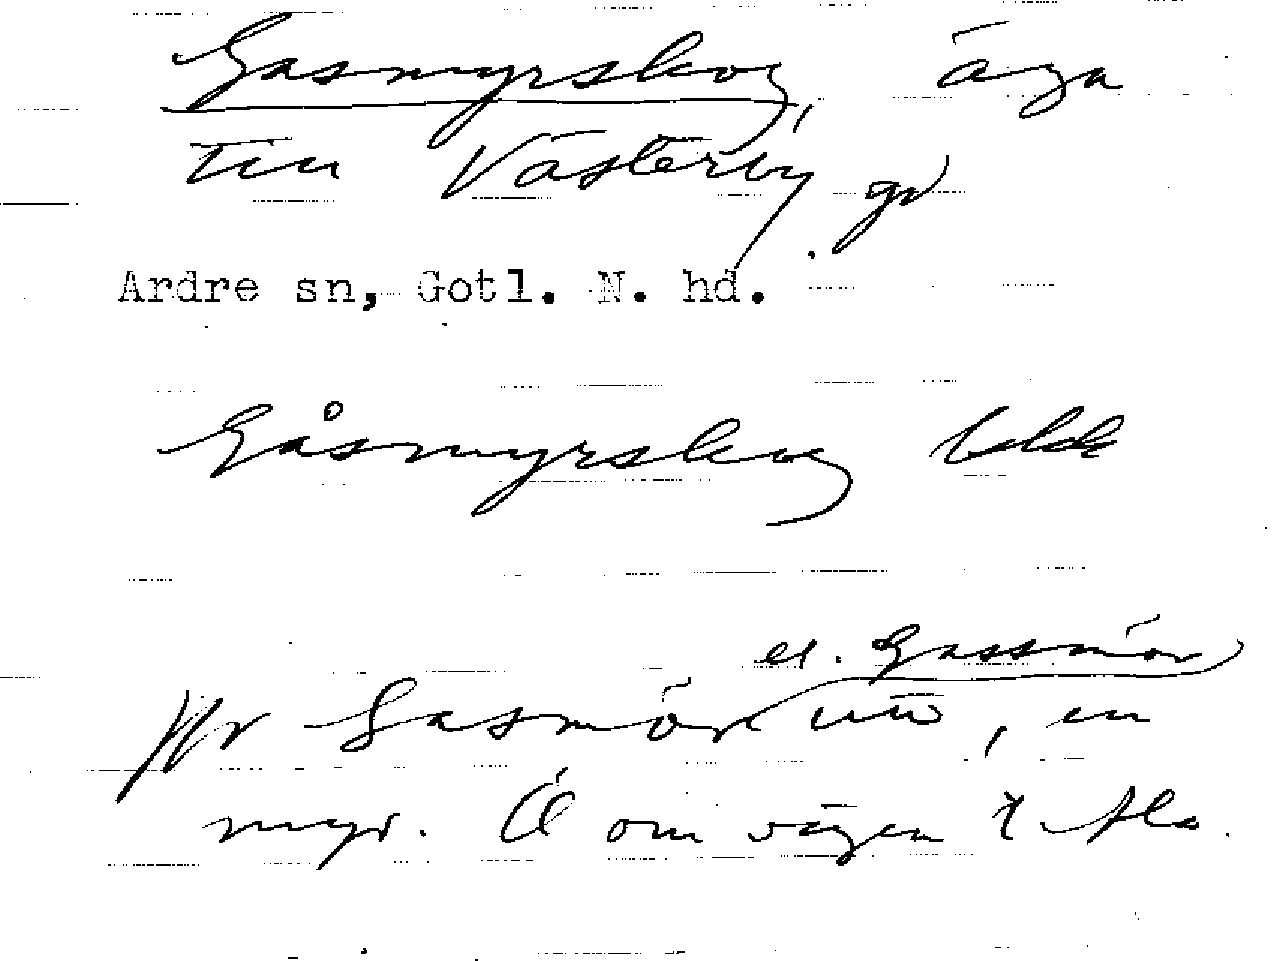 Gasmyrskog, äga
till Västerby gd
Ardre sn, Gotl. N. hd.
Gåsmyrskog blkk
el. Gassmör
Gasmör, en
myr. Ö om vägen t Ala.